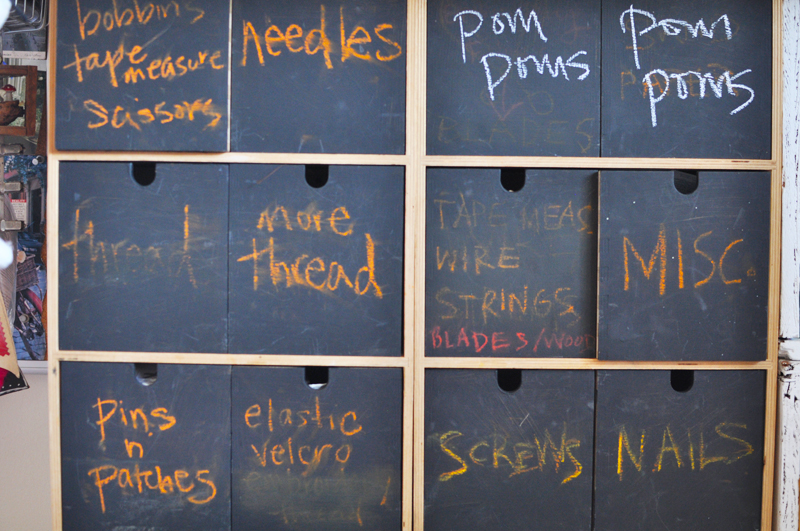 bobbins
tape measure
scissors
needles
pom
poms
pom
poms
thread
more
thread
TAPE MEAS
WIRE
STRINGS
BLADES/WOOD
MISC.
pins
n
patches
elastic
velcro
SCREWS
NAILS